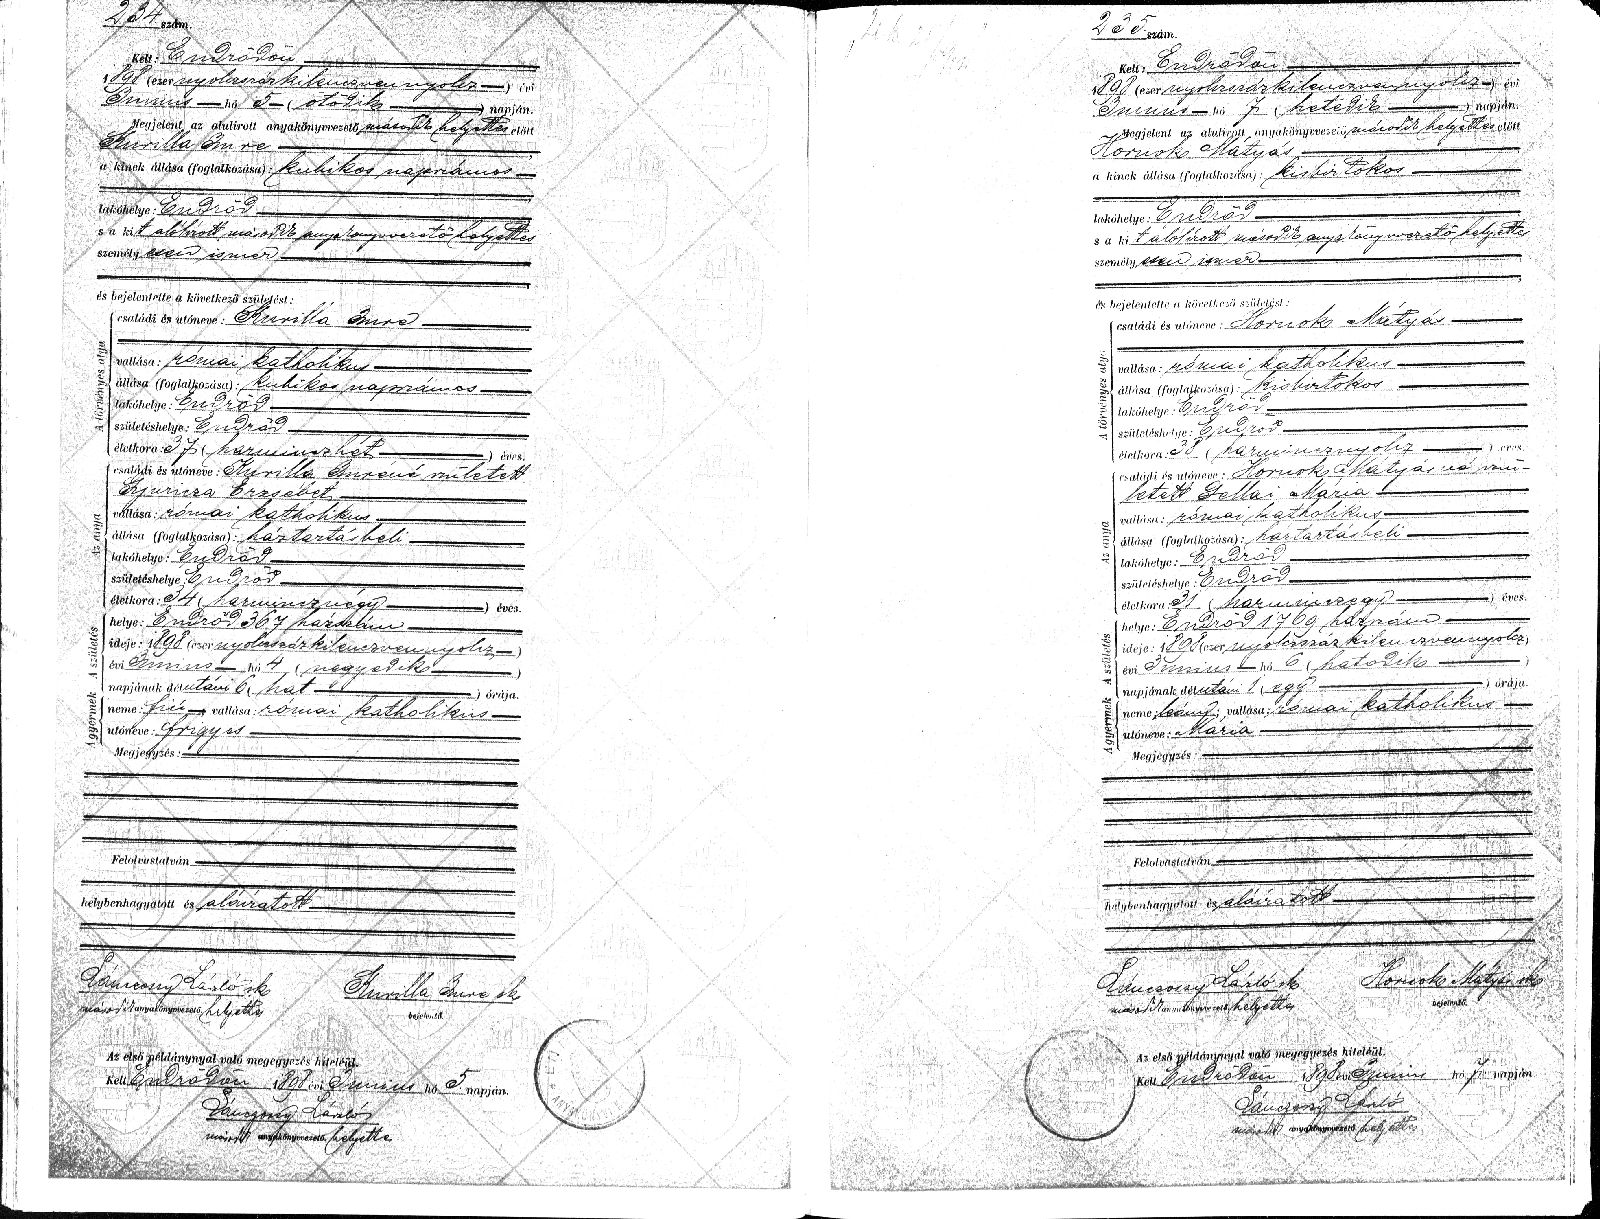 234 szám.
Kelt: Endrődön
1898 (ezer nyolczszázkilenczvennyolcz) évi
Junius hó 5 (ötödik) napján.
Megjelent az alulirott anyakönyvvezető második helyettes előtt
Kurilla Imre
a kinek állása (foglalkozása): kubikos napszámos
lakóhelye: Endrőd
s a kit alólirott második anyakönyvvezető helyettes
személyesen ismer
és bejelentette a következő születést:
A törvényes atya
családi és utóneve: Kurilla Imre
vallása: római katholikus
állása (foglalkozása): kubikos napszámos
lakóhelye: Endrőd
születéshelye: Endrőd
életkora: 37 (harminczhét) éves.
Az anya
családi és utóneve: Kurilla Imréné született
Gyuricza Erzsébet
vallása: római katholikus
állása (foglalkozása): háztartásbeli
lakóhelye: Endrőd
születéshelye: Endrőd
életkora: 34 (harmincznégy) éves.
A születés
helye: Endrőd 367 házszám
ideje: 1898 (ezer nyolczszázkilenczvennyolcz)
évi Junius hó 4 (negyedik)
napjának délutáni 6 (hat) órája.
A gyermek
neme: fiú vallása: római katholikus
utóneve: Frigyes
Megjegyzés:
Felolvastatván
helybenhagyatott és aláiratott
Lánczony László sk Kurilla Imre sk
második anyakönyvvezető helyettes bejelentő.
Az első példánynyal való megegyezés hiteléül.
Kelt Endrődön 1898 évi Junius hó 5 napján.
Lánczony László
második anyakönyvvezető helyettes
235 szám.
Kelt: Endrődön
1898 (ezer nyolczszázkilenczvennyolcz) évi
Junius hó 7 (hetedik) napján.
Megjelent az alulirott anyakönyvvezető második helyettes előtt
Hornok Mátyás
a kinek állása (foglalkozása): kisbirtokos
lakóhelye: Endrőd
s a kit alólirott második anyakönyvvezető helyettes
személyesen ismer
és bejelentette a következő születést:
A törvényes atya
családi és utóneve: Hornok Mátyás
vallása: római katholikus
állása (foglalkozása): kisbirtokos
lakóhelye: Endrőd
születéshelye: Endrőd
életkora: 38 (harmincznyolcz) éves.
Az anya
családi és utóneve: Hornok Mátyásné szü-
letett Gellai Mária
vallása: római katholikus
állása (foglalkozása): háztartásbeli
lakóhelye: Endrőd
születéshelye: Endrőd
életkora: 31 (harminczegy) éves.
A születés
helye: Endrőd 1769 házszám
ideje: 1898 (ezer nyolczszázkilenczvennyolcz)
évi Junius hó 6 (hatodik)
napjának délutáni 1 (egy) órája.
A gyermek
neme: leány; vallása: római katholikus
utóneve: Mária
Megjegyzés:
Felolvastatván
helybenhagyatott és aláiratott
Lánczony László sk Hornok Mátyás sk
második anyakönyvvezető helyettes bejelentő.
Az első példánynyal való megegyezés hiteléül.
Kelt Endrődön 1898 évi Junius hó 7 napján
Lánczony László
második anyakönyvvezető helyettes